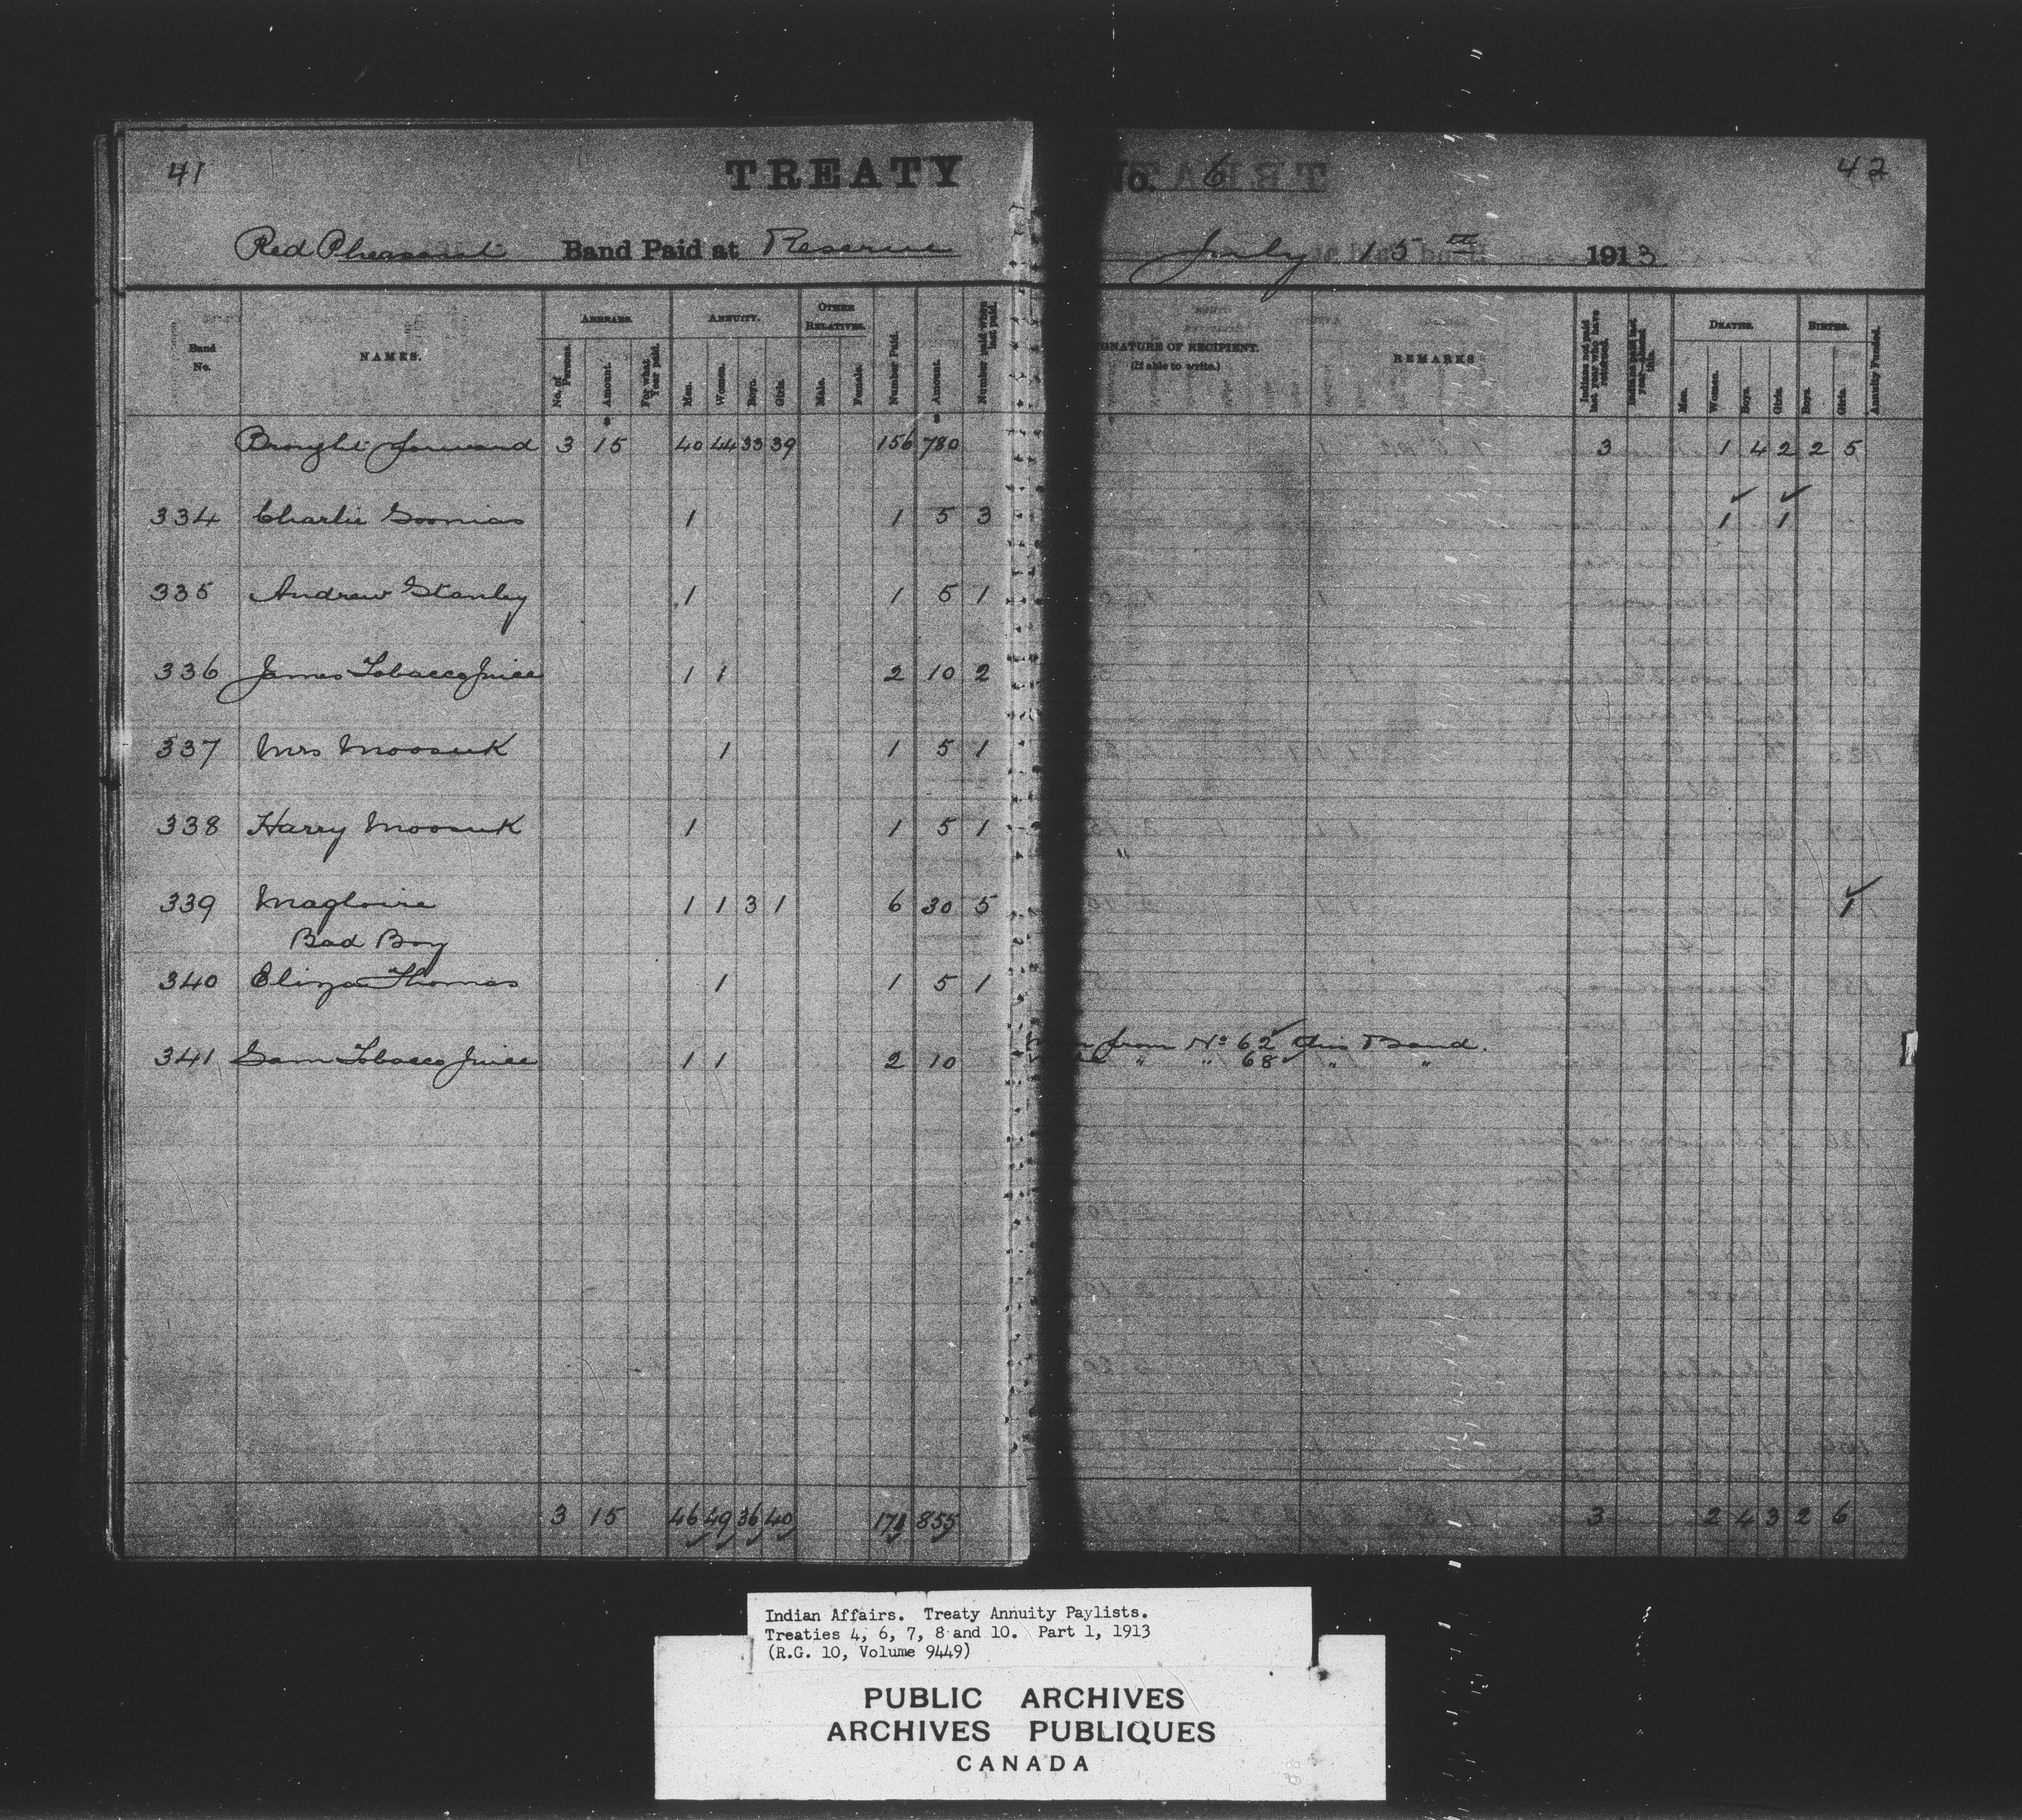 41
TREATY
No. 6
42
Red Pheasant Band Paid at Reserve
July 15th 1913
Band No.
NAMES.
ARREARS.
No. of Persons.
Amount.
For what Year paid.
ANNUITY.
Men.
Women.
Boys.
Girls.
OTHER RELATIVES.
Male.
Female.
Number Paid.
Amount.
Number paid when last paid.
SIGNATURE OF RECIPIENT.
(If able to write.)
REMARKS
Indians not paid last year who have returned.
Indians paid last year—absent this.
DEATHS.
Men.
Women.
Boys.
Girls.
BIRTHS.
Boys.
Girls.
Annuity Funded.
Brought forward 3 15 40 44 33 39 156 780 3 1 4 2 2 5
334 Charlie Soonias 1 1 5 3 1 1
335 Andrew Stanley 1 1 5 1
336 James Tobacco Juice 1 1 2 10 2
337 Mrs Moosuk 1 1 5 1
338 Harry Moosuk 1 1 5 1
339 Magloire 1 1 3 1 6 30 5 1
Bad Boy
340 Eliza Thomas 1 1 5 1
341 Sam Tobacco Juice 1 1 2 10
from No 62 this Band.
" " 68 " "
3 15 46 49 36 40 171 855 3 2 4 3 2 6
Indian Affairs. Treaty Annuity Paylists.
Treaties 4, 6, 7, 8 and 10. Part 1, 1913
(R.G. 10, Volume 9449)
PUBLIC ARCHIVES
ARCHIVES PUBLIQUES
CANADA